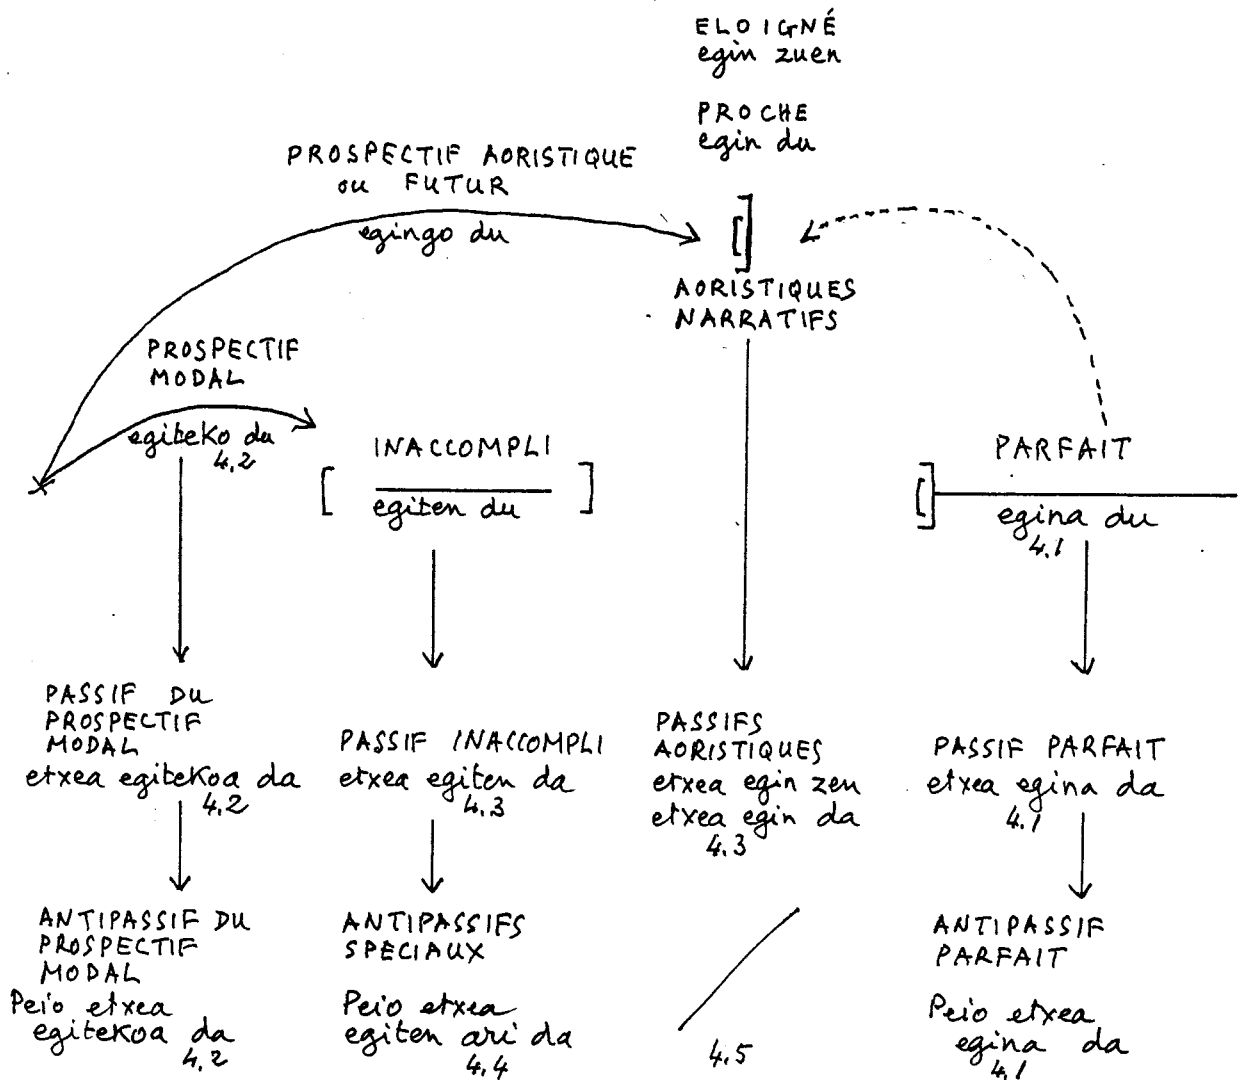 ELOIGNÉ
egin zuen
PROCHE
egin du
PROSPECTIF AORISTIQUE
ou FUTUR
egingo du
AORISTIQUES
NARRATIFS
PROSPECTIF
MODAL
egiteko du
4.2
INACCOMPLI
egiten du
PARFAIT
egina du
4.1
PASSIF DU
PROSPECTIF
MODAL
etxea egitekoa da
4.2
PASSIF INACCOMPLI
etxea egiten da
4.3
PASSIFS
AORISTIQUES
etxea egin zen
etxea egin da
4.3
PASSIF PARFAIT
etxea egina da
4.1
ANTIPASSIF DU
PROSPECTIF
MODAL
Peio etxea
egitekoa da
4.2
ANTIPASSIFS
SPECIAUX
Peio etxea
egiten ari da
4.4
4.5
ANTIPASSIF
PARFAIT
Peio etxea
egina da
4.1